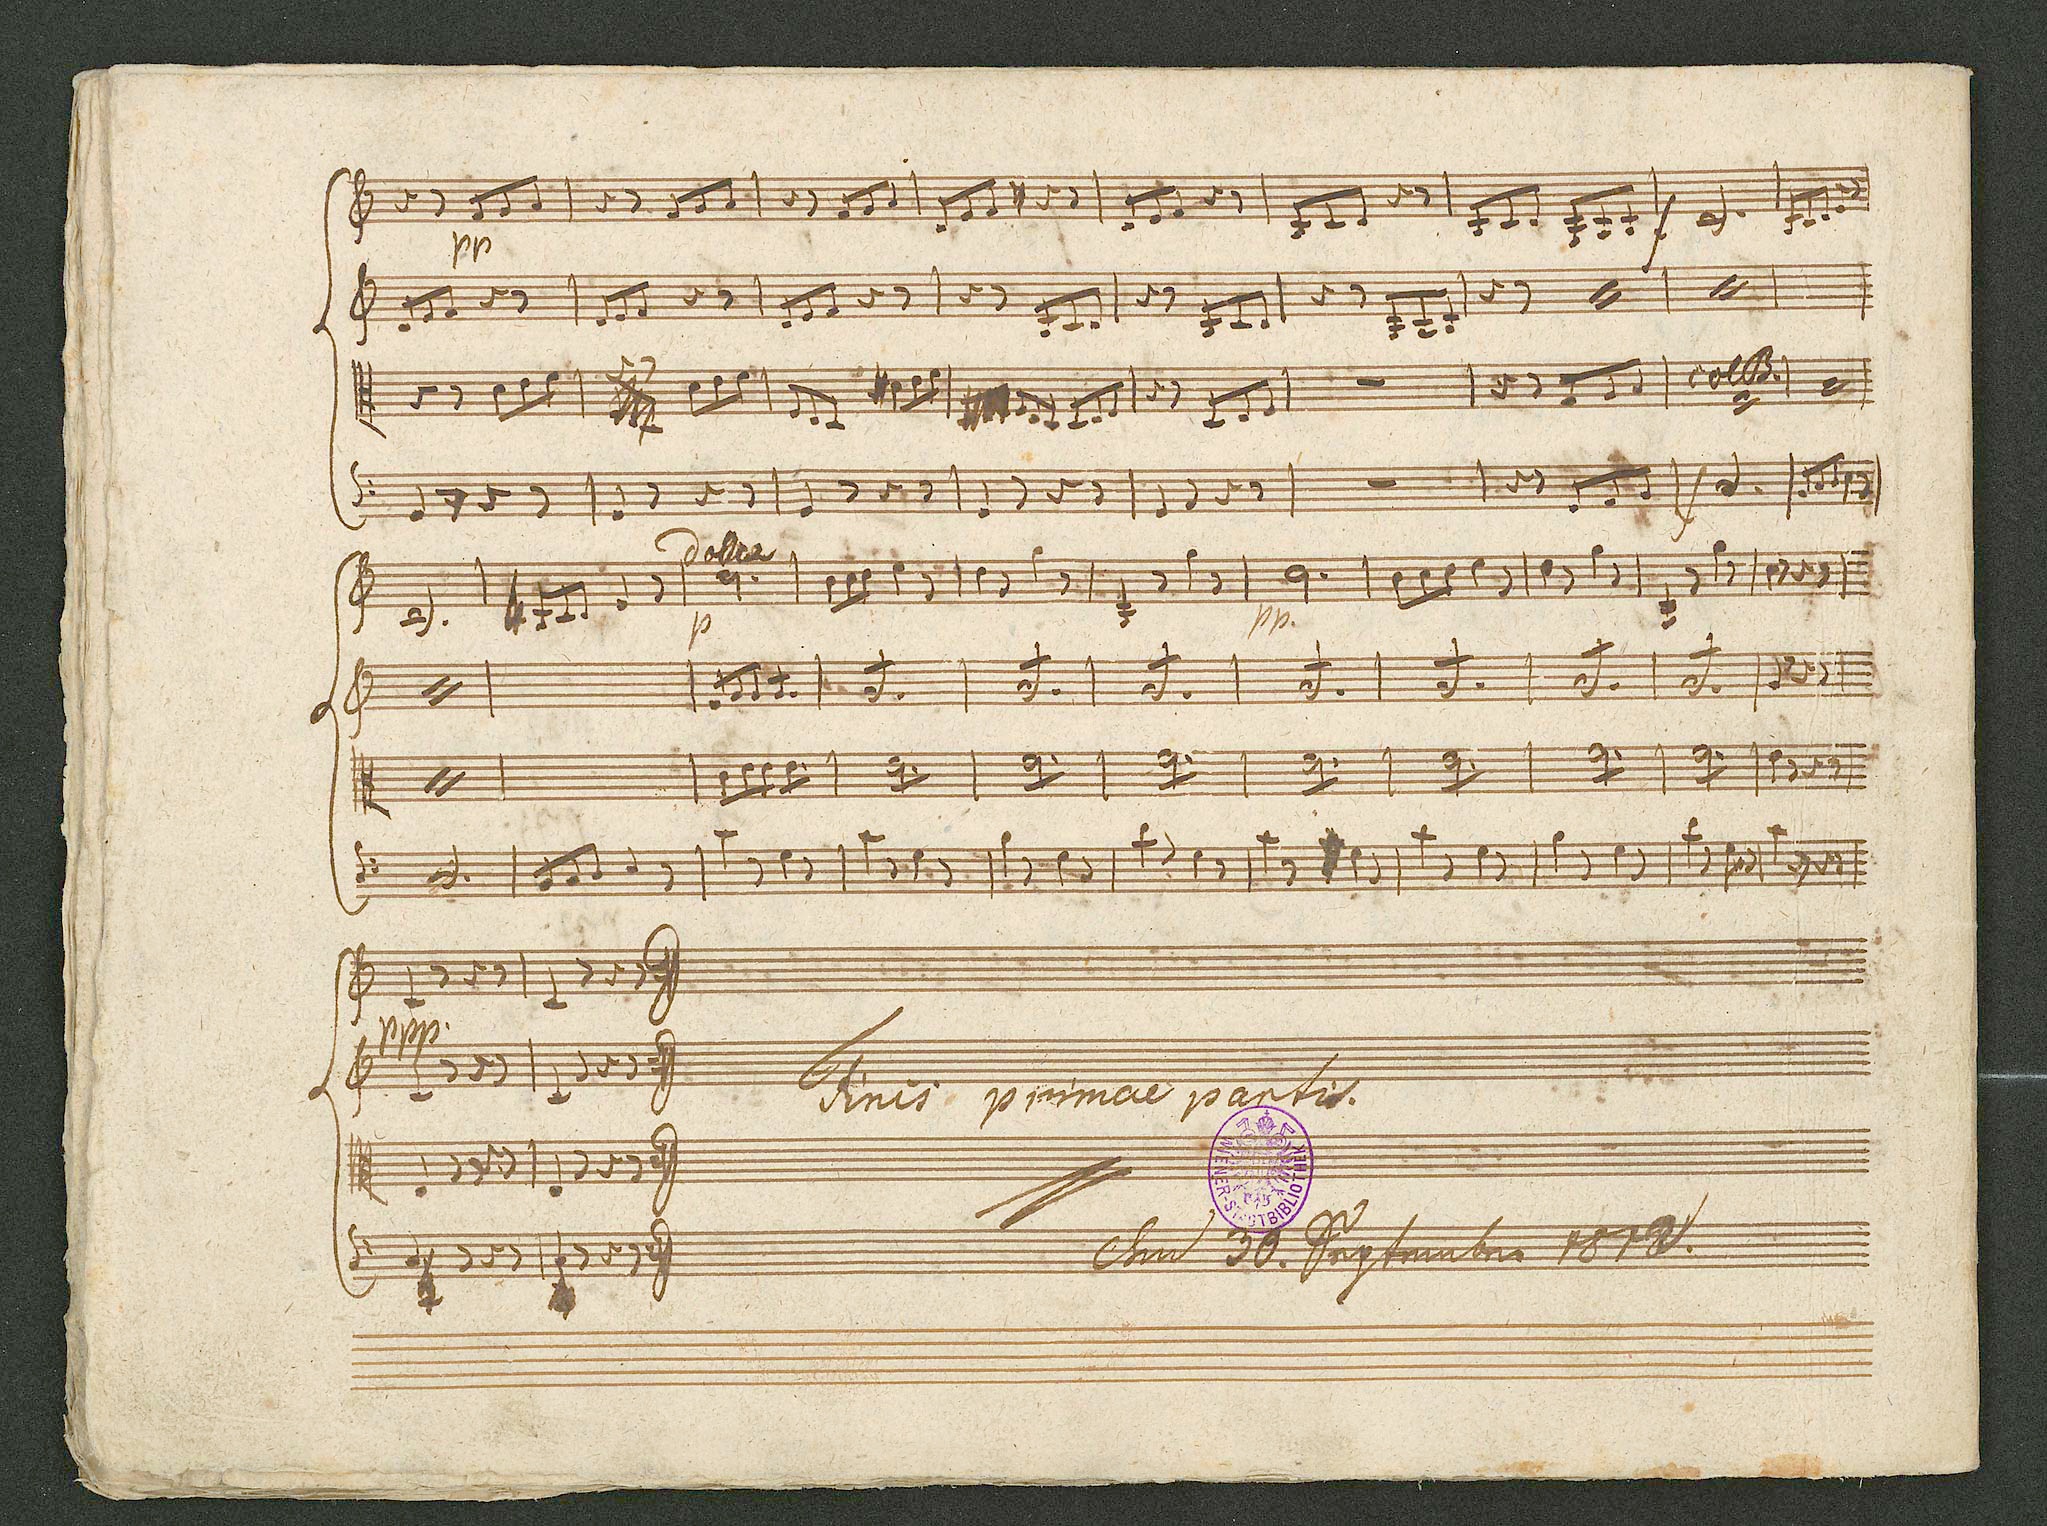 pp
f
col B.
f
dolce
p
pp.
ppp.
Finis primae partis.
WIENER-STADTBIBLIOTHEK
den 30. September 1812.